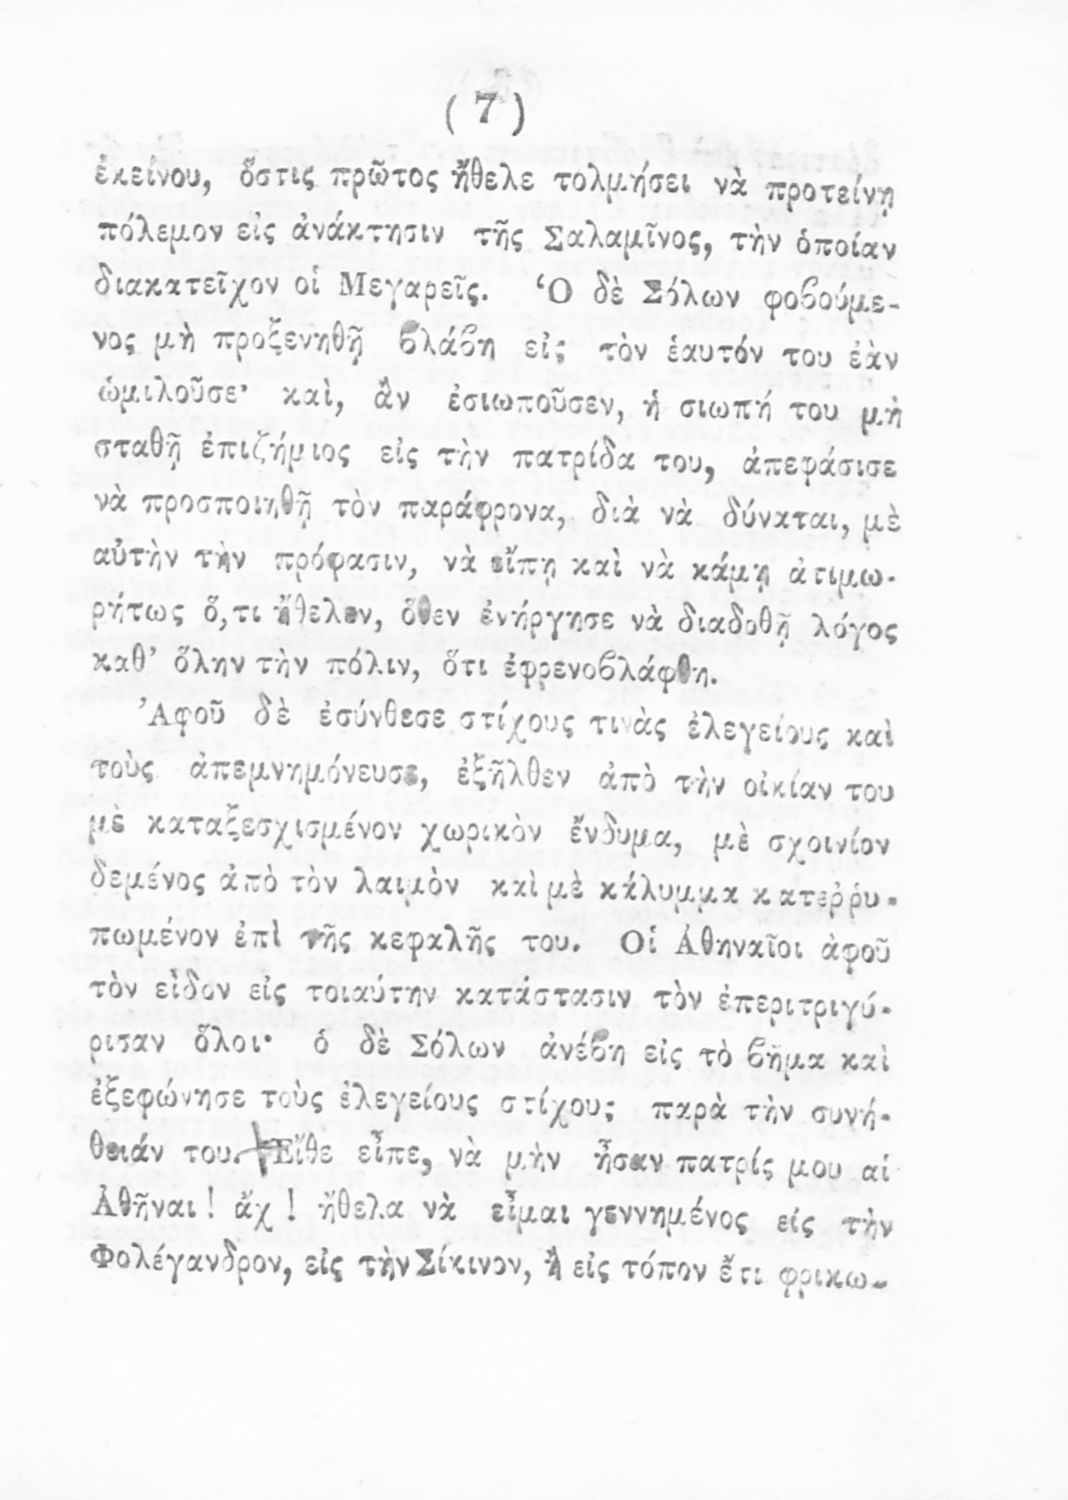 ( 7 )
ἐκείνου, ὅστις πρῶτος ἤθελε τολμήσει νὰ προτείνῃ
πόλεμον εἰς ἀνάκτησιν τῆς Σαλαμῖνος, τὴν ὁποίαν
διακατεῖχον οἱ Μεγαρεῖς. Ὁ δὲ Σόλων φοβούμε-
νος μὴ προξενηθῇ βλάβη εἰς τὸν ἑαυτόν του ἐὰν
ὡμιλοῦσε· καὶ, ἂν ἐσιωποῦσεν, ἡ σιωπή του μὴ
σταθῇ ἐπιζήμιος εἰς τὴν πατρίδα του, ἀπεφάσισε
νὰ προσποιηθῇ τὸν παράφρονα, διὰ νὰ δύναται, μὲ
αὐτὴν τὴν πρόφασιν, νὰ εἴπῃ καὶ νὰ κάμῃ ἀτιμω-
ρήτως ὅ,τι ἤθελεν, ὅθεν ἐνήργησε νὰ διαδοθῇ λόγος
καθ’ ὅλην τὴν πόλιν, ὅτι ἐφρενοβλάφθη.
Ἀφοῦ δὲ ἐσύνθεσε στίχους τινὰς ἐλεγείους καὶ
τοὺς ἀπεμνημόνευσε, ἐξῆλθεν ἀπὸ τὴν οἰκίαν του
μὲ καταξεσχισμένον χωρικὸν ἔνδυμα, μὲ σχοινίον
δεμένος ἀπὸ τὸν λαιμὸν καὶ μὲ κάλυμμα κατεῤῥυ-
πωμένον ἐπὶ τῆς κεφαλῆς του. Οἱ Ἀθηναῖοι ἀφοῦ
τὸν εἶδον εἰς τοιαύτην κατάστασιν τὸν ἐπεριτριγύ-
ρισαν ὅλοι· ὁ δὲ Σόλων ἀνέβη εἰς τὸ βῆμα καὶ
ἐξεφώνησε τοὺς ἐλεγείους στίχους παρὰ τὴν συνή-
θειάν του. Εἴθε εἶπε, νὰ μὴν ἦσαν πατρίς μου αἱ
Ἀθῆναι! ἄχ! ἤθελα νὰ εἶμαι γεννημένος εἰς τὴν
Φολέγανδρον, εἰς τὴν Σίκινον, ἢ εἰς τόπον ἔτι φρικω-